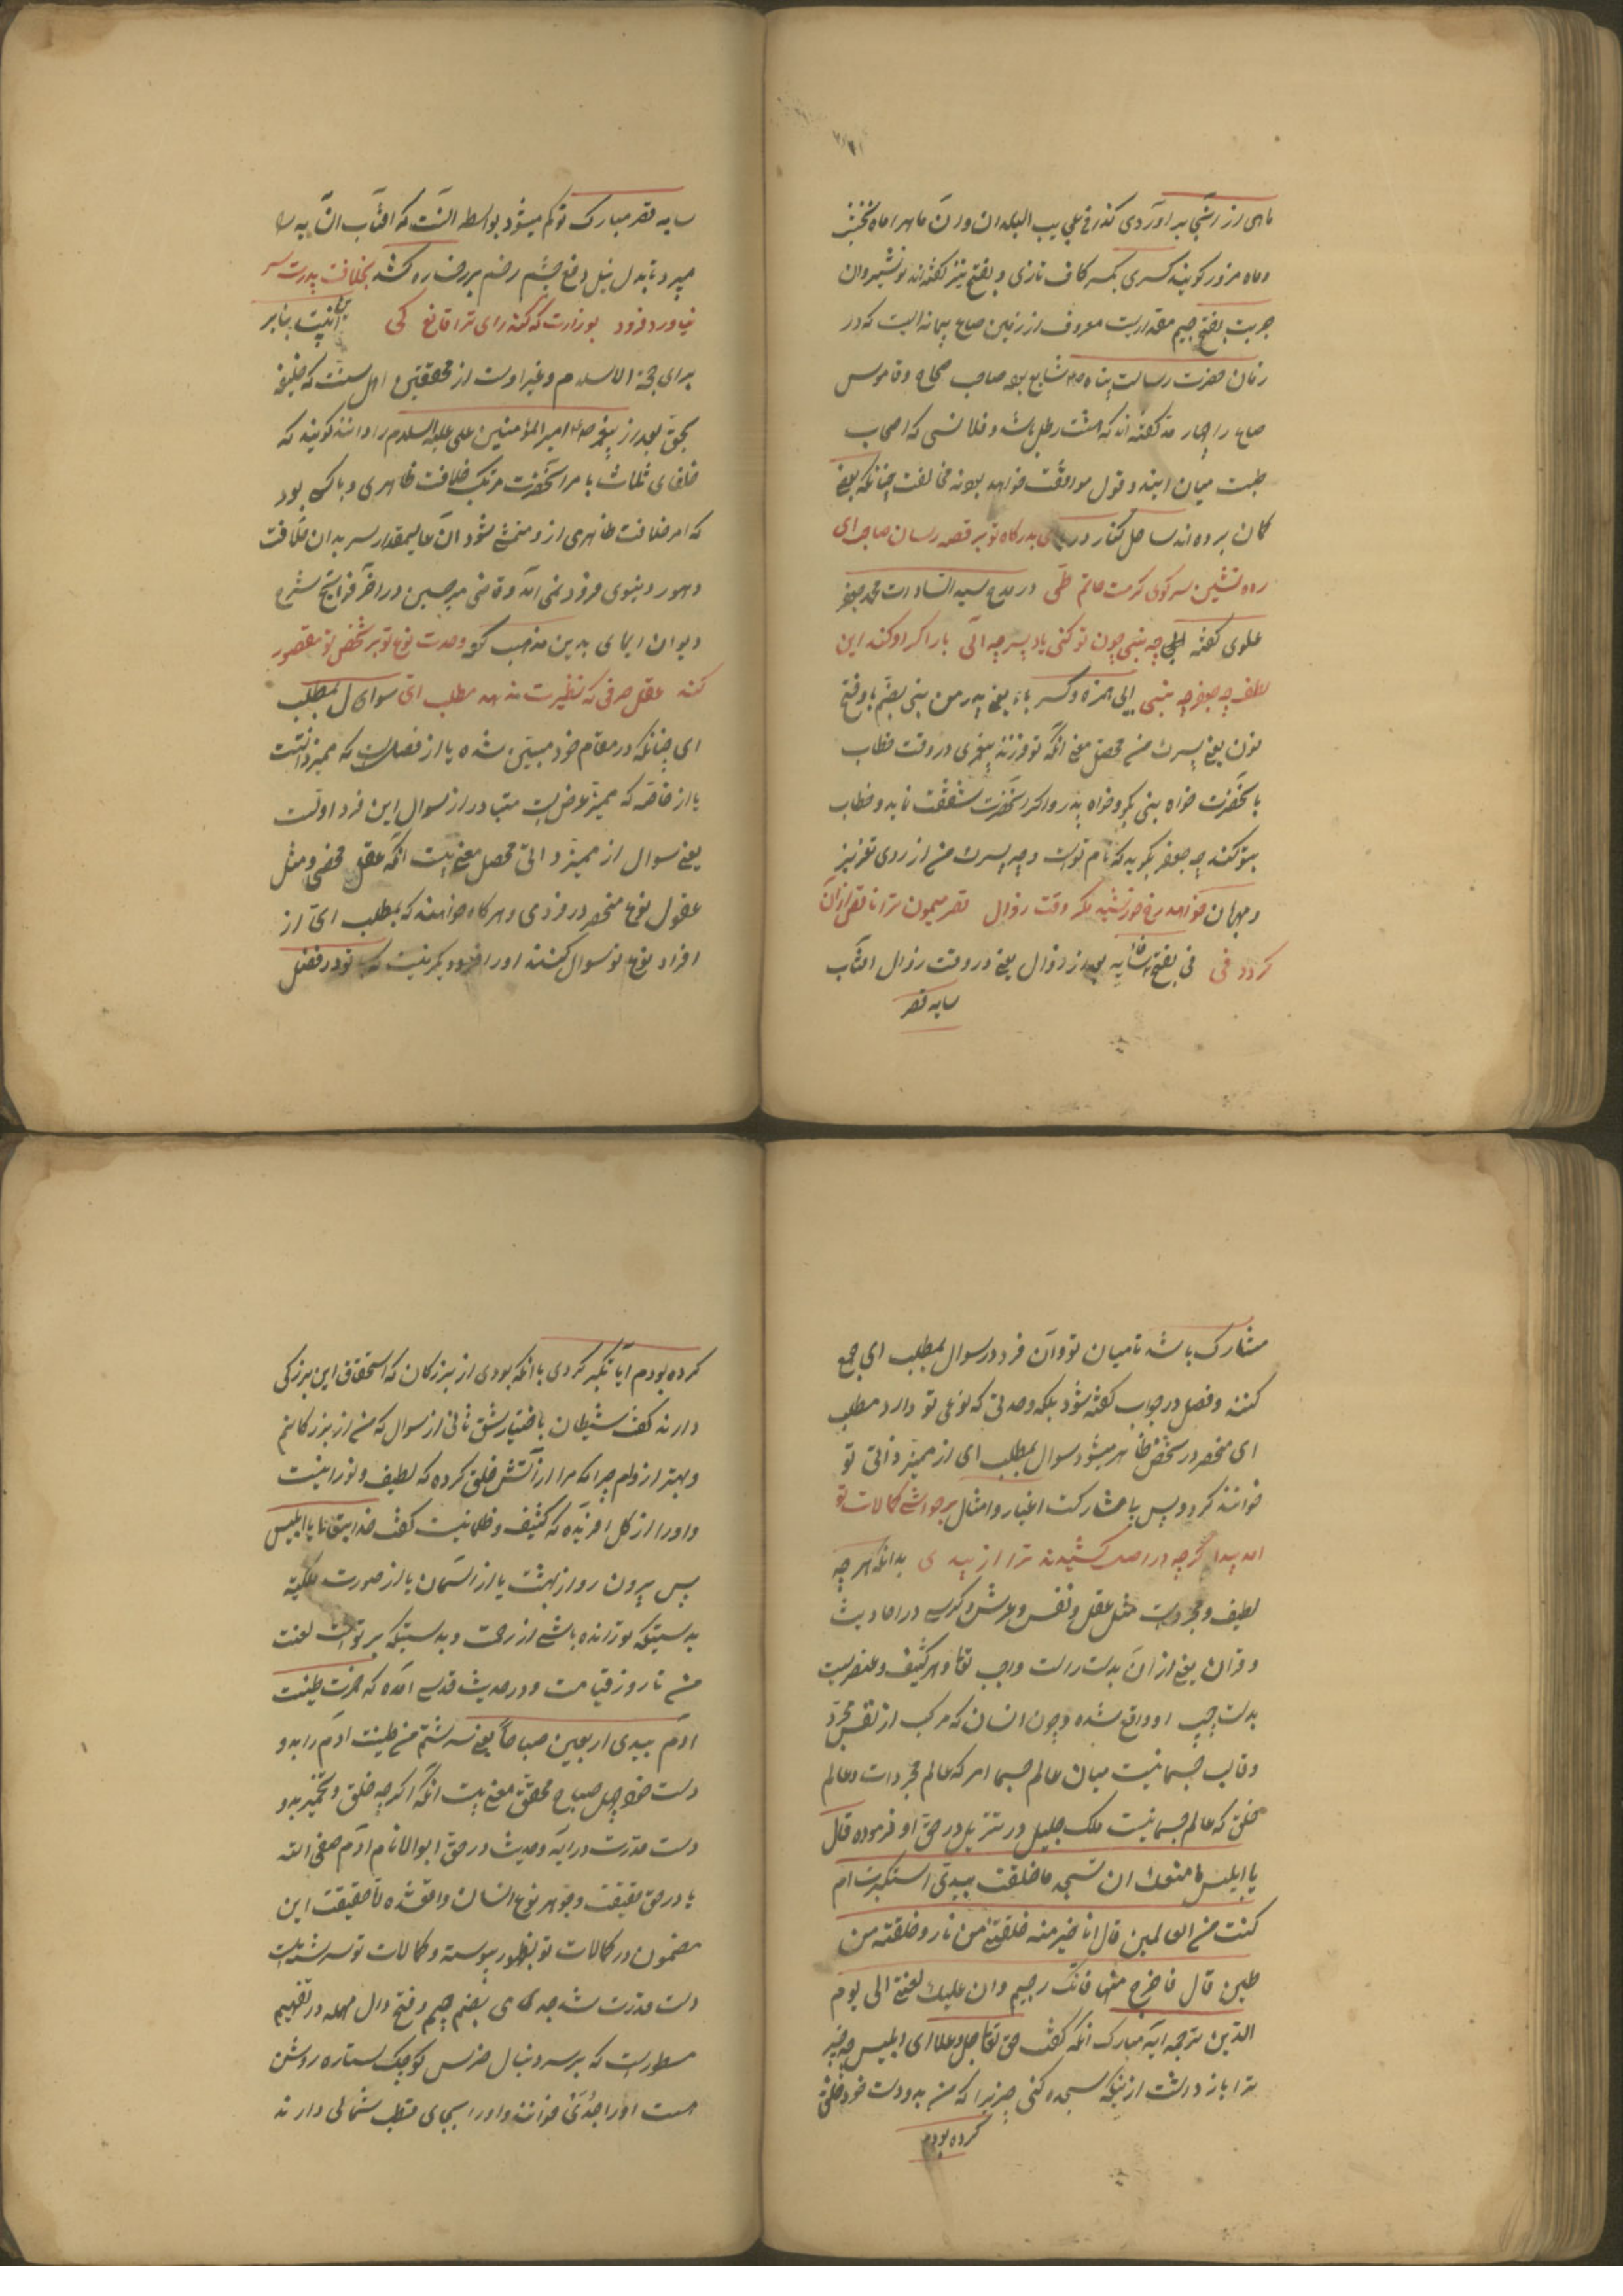 ماهی از آنجا بر آوردی کذا فی عجایب البلدان و از آن ماهرا ماه نخشب
و ماه مزور کویند کسری بکسر کاف تازی و بفتح نیز کفته‌اند نوشیروان
جریب بفتح جیم مقداریست معروف از زمین صاع پیمانه‌ایست که در
زمان حضرت رسالت پناه شایع بوده صاحب صحاح و قاموس
صاع را چهار مد کفته‌اند که هشت رطل باشد و فلانسی که اصحاب
میان ایندو قول موافقت خواهد بود نه مخالفت چنانکه بعضی
کمان برده‌اند ساحل کنار دریا بدرکاه تو بر قصه رسان صاحب رای
راه نشین سر کوی کرمت حاتم طی در مدح سید السادات محمد جعفر
علوی کفته ابی چه بنی چون تو کنی یاد پسر چه ابی بار اکر او کند این
لطف چه جعفر چه بنی ابی بهمزه و کسر باء یعنی پدر من بنی بضم با و فتح
نون یعنی پسرک من محصل معنی آنکه تو فرزند پیغمبری در وقت خطاب
بآنحضرت خواه بنی بکو و خواه پدر و اکر آنحضرت شفقت نماید و خطاب
بتو کند چه جعفر بکوید که نام توست و چه پسرک من از روی عزیز
و مهربان خواهد رخ خورشید مکر وقت زوال قصر میمون ترا ناقص از آن
کردد فی فی بفتح فا سایه بعد از زوال یعنی در وقت زوال افتاب
سایه قصر
سایه قصر مبارک تو کم میشود بواسطه آنست که افتاب آن سایه را
میبرد و بدل نیل دفع چشم زخم بر رخساره کشد بخلافت پدرت سر
نیاورد فرود بوزارت که کند رای ترا قانع کی این بیت بنابر
برای حجة الاسلام و غیر اوست از محققین اهل سنت که خلیفه
بحق بعد از پیغمبر امیر المؤمنین علی علیه السلام را دانند کویند که
خلفای ثلاث با مر آنحضرت مرتکب خلافت ظاهری و باک بود
که امر خلافت ظاهری از و متمشی شود آن عالیمقدار سر بدان خلافت
و امور دنیوی فرود نمی آمد و قاضی میر حسین در آخر فواتح شرح
دیوان ایمای بدین مذهب کرده وحدت نوع تو بر شخص تو مقصور
کند عقل صرفی که نظیرت ندهد مطلب ای سوال بمطلب
ای چنانکه در مقام خود مبین شده یا از فصلست که ممیز ذاتیست
یا از خاصه که ممیز عرضیست متبادر از سوال این فرد اولست
یعنی سوال از ممیز ذاتی محصل معنی بیت آنکه عقل محض و مثل
عقول نوع منحصر در فردی و هر کاه خواهند که بمطلب ای از
افراد نوع تو سوال کنند او را فرد دیکر نیست که با تو در فضل
مشارک باشد تا میان تو و آن فرد در سوال بمطلب ای جمع
کنند و فصل در جواب کفته شود بلکه وحدتی که نوعی تو دارد مطلب
ای منحصر در شخص ظاهر میشود سوال بمطلب ای از ممیز ذاتی تو
خوانند کرد و پس با مشارکت اغیار و امثال بر حواشی کمالات تو
آمد پیدا کرچه در اصل کشیدند ترا از ید ی بدانکه هر چه
لطیف و مجردات مثل عقل و نفس و عرش و کرسی در احادیث
و قرآن یعنی از آن بدست راست واجب تعالی و هر کثیف و عنصریست
بدست چپ او واقع شده و چون انسان که مرکب از نفس مجرد
و قالب جسمانیست میان عالم جسم امر که عالم مجردات و عالم
خلق که عالم جسمانیست ملک جلیل در تنزیل در حق او فرموده قال
یا ابلیس ما منعک ان تسجد ما خلقت بیدی استکبرت ام
کنت من العالمین قال انا خیر منه خلقتنی من نار و خلقته من
طین قال فاخرج منها فانک رجیم و ان علیک لعنتی الی یوم
الدین ترجمه آیه مبارک آنکه کفت حق تعالی جل و علا ای ابلیس چه چیز
ترا باز داشت از اینکه سجده کنی چیزیرا که من بدو دست خود خلق
کرده بودم
کرده بودم آیا تکبر کردی یا آنکه بودی از بزرکان که استحقاق این بزرکی
دارند کفت شیطان با ختیار شق ثانی از سوال که من از بزرکانم
و بهتر از آدم چرا که مرا از آتش خلق کرده که لطیف و نورانیست
و او را از کل آفریده که کثیف و ظلمانیست کفت خدایتعالی با ابلیس
پس بیرون رو از بهشت یا از آسمان یا از صورت ملکیه
بدرستیکه تو رانده باشی از رحمت و بدرستیکه بر تو است لعنت
من تا روز قیامت و در حدیث قدسی آمده که خمرت طینت
آدم بیدی اربعین صباحا یعنی سرشتم من طینت آدم را بدو
دست خود چهل صباح محقق معنی بیت آنکه اکرچه خلق و تخمیر بدو
دست قدرت در آیه و حدیث در حق ابوالانام آدم صفی الله
یا در حق حقیقت و جوهر نوع انسان واقعشده تا حقیقت این
مضمون در کمالات تو بظهور پیوسته و کمالات تو سرشته
دست قدرت شد جدی ی بضم جیم و فتح دال مهمله در تفهیم
مسطور است که بر سر دنبال خرس کوچک ستاره روشن
است او را جدی خوانند و او را بجای قطب شمالی دارند